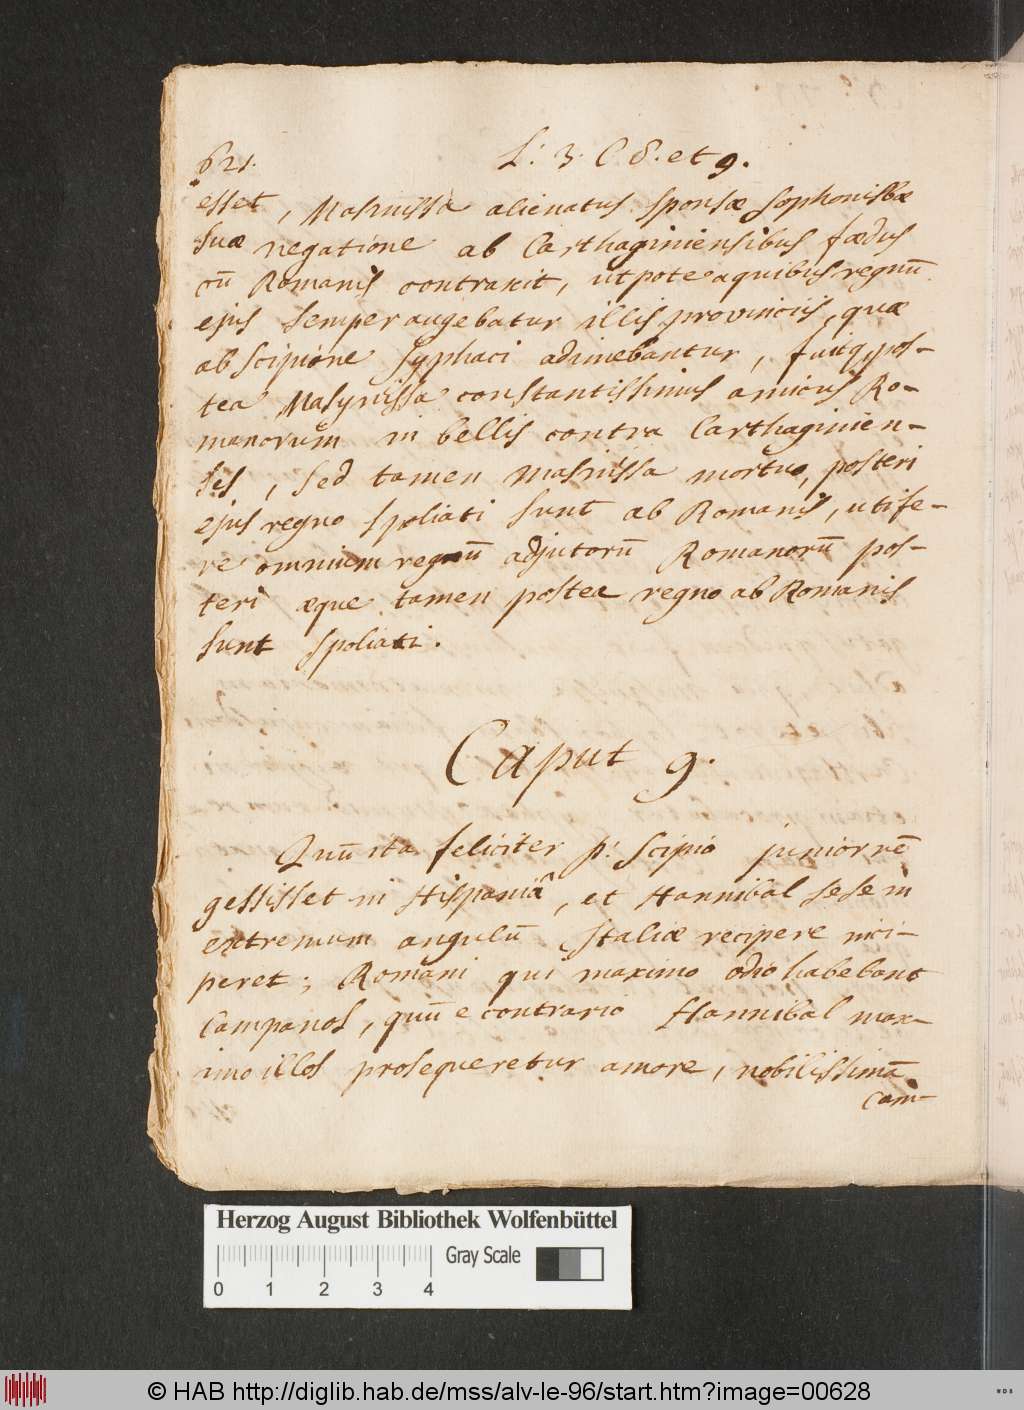 621. L. 3. C. 8. et 9.
esset, Masinissa alienatus sponsæ Sophonisbæ
suæ negatione ab Carthaginiensibus fœdus
cū Romanis contraxit, utpote a quibus regnū
ejus semper augebatur illis provinciis, quæ
ab Scipione Syphaci adimebantur, fuitq. pos-
tea Masynissa constantissimus amicus Ro-
manorum in bellis contra Carthaginien-
ses, sed tamen Masinissa mortuo, posteri
ejus regno spoliati sunt ab Romanis, uti fe-
re omnium regnū adjutorū Romanorū pos-
teri æque tamen postea regno ab Romanis
sunt spoliati.
Caput 9.
Quū ita feliciter P. Scipio junior rē
gessisset in Hispaniâ, et Hannibal sese in
extremum angulū Italiæ recipere inci-
peret; Romani qui maximo odio habebant
Campanos, quū e contrario Hannibal max-
imo illos prosequeretur amore, nobilissimā
Cam-
Herzog August Bibliothek Wolfenbüttel
Gray Scale
0 1 2 3 4
© HAB http://diglib.hab.de/mss/alv-le-96/start.htm?image=00628